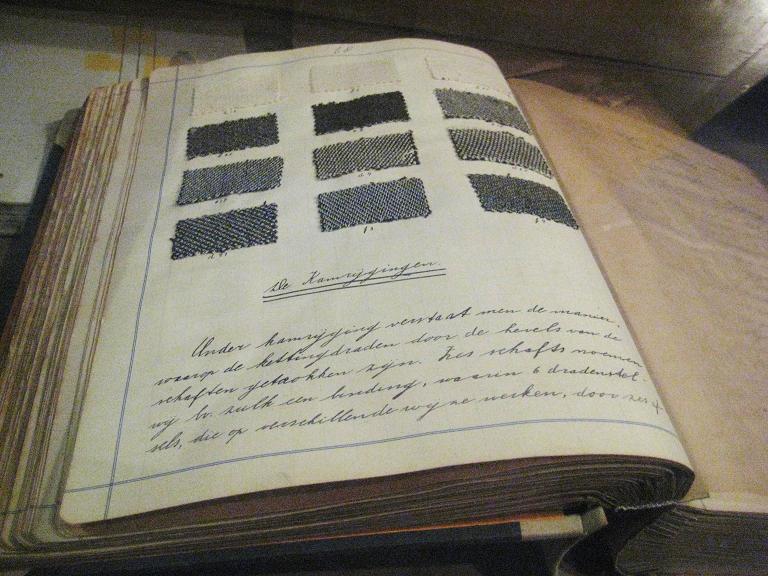 De Kamrijgingen.
Onder kamrijging verstaat men de manier,
waarop de kettingdraden door de hevels van de
schaften getrokken zijn. Zes schafts noemen
wij bv. zulk een binding, waarin 6 dradenstel-
sels, die op verschillende wijze werken, door zes